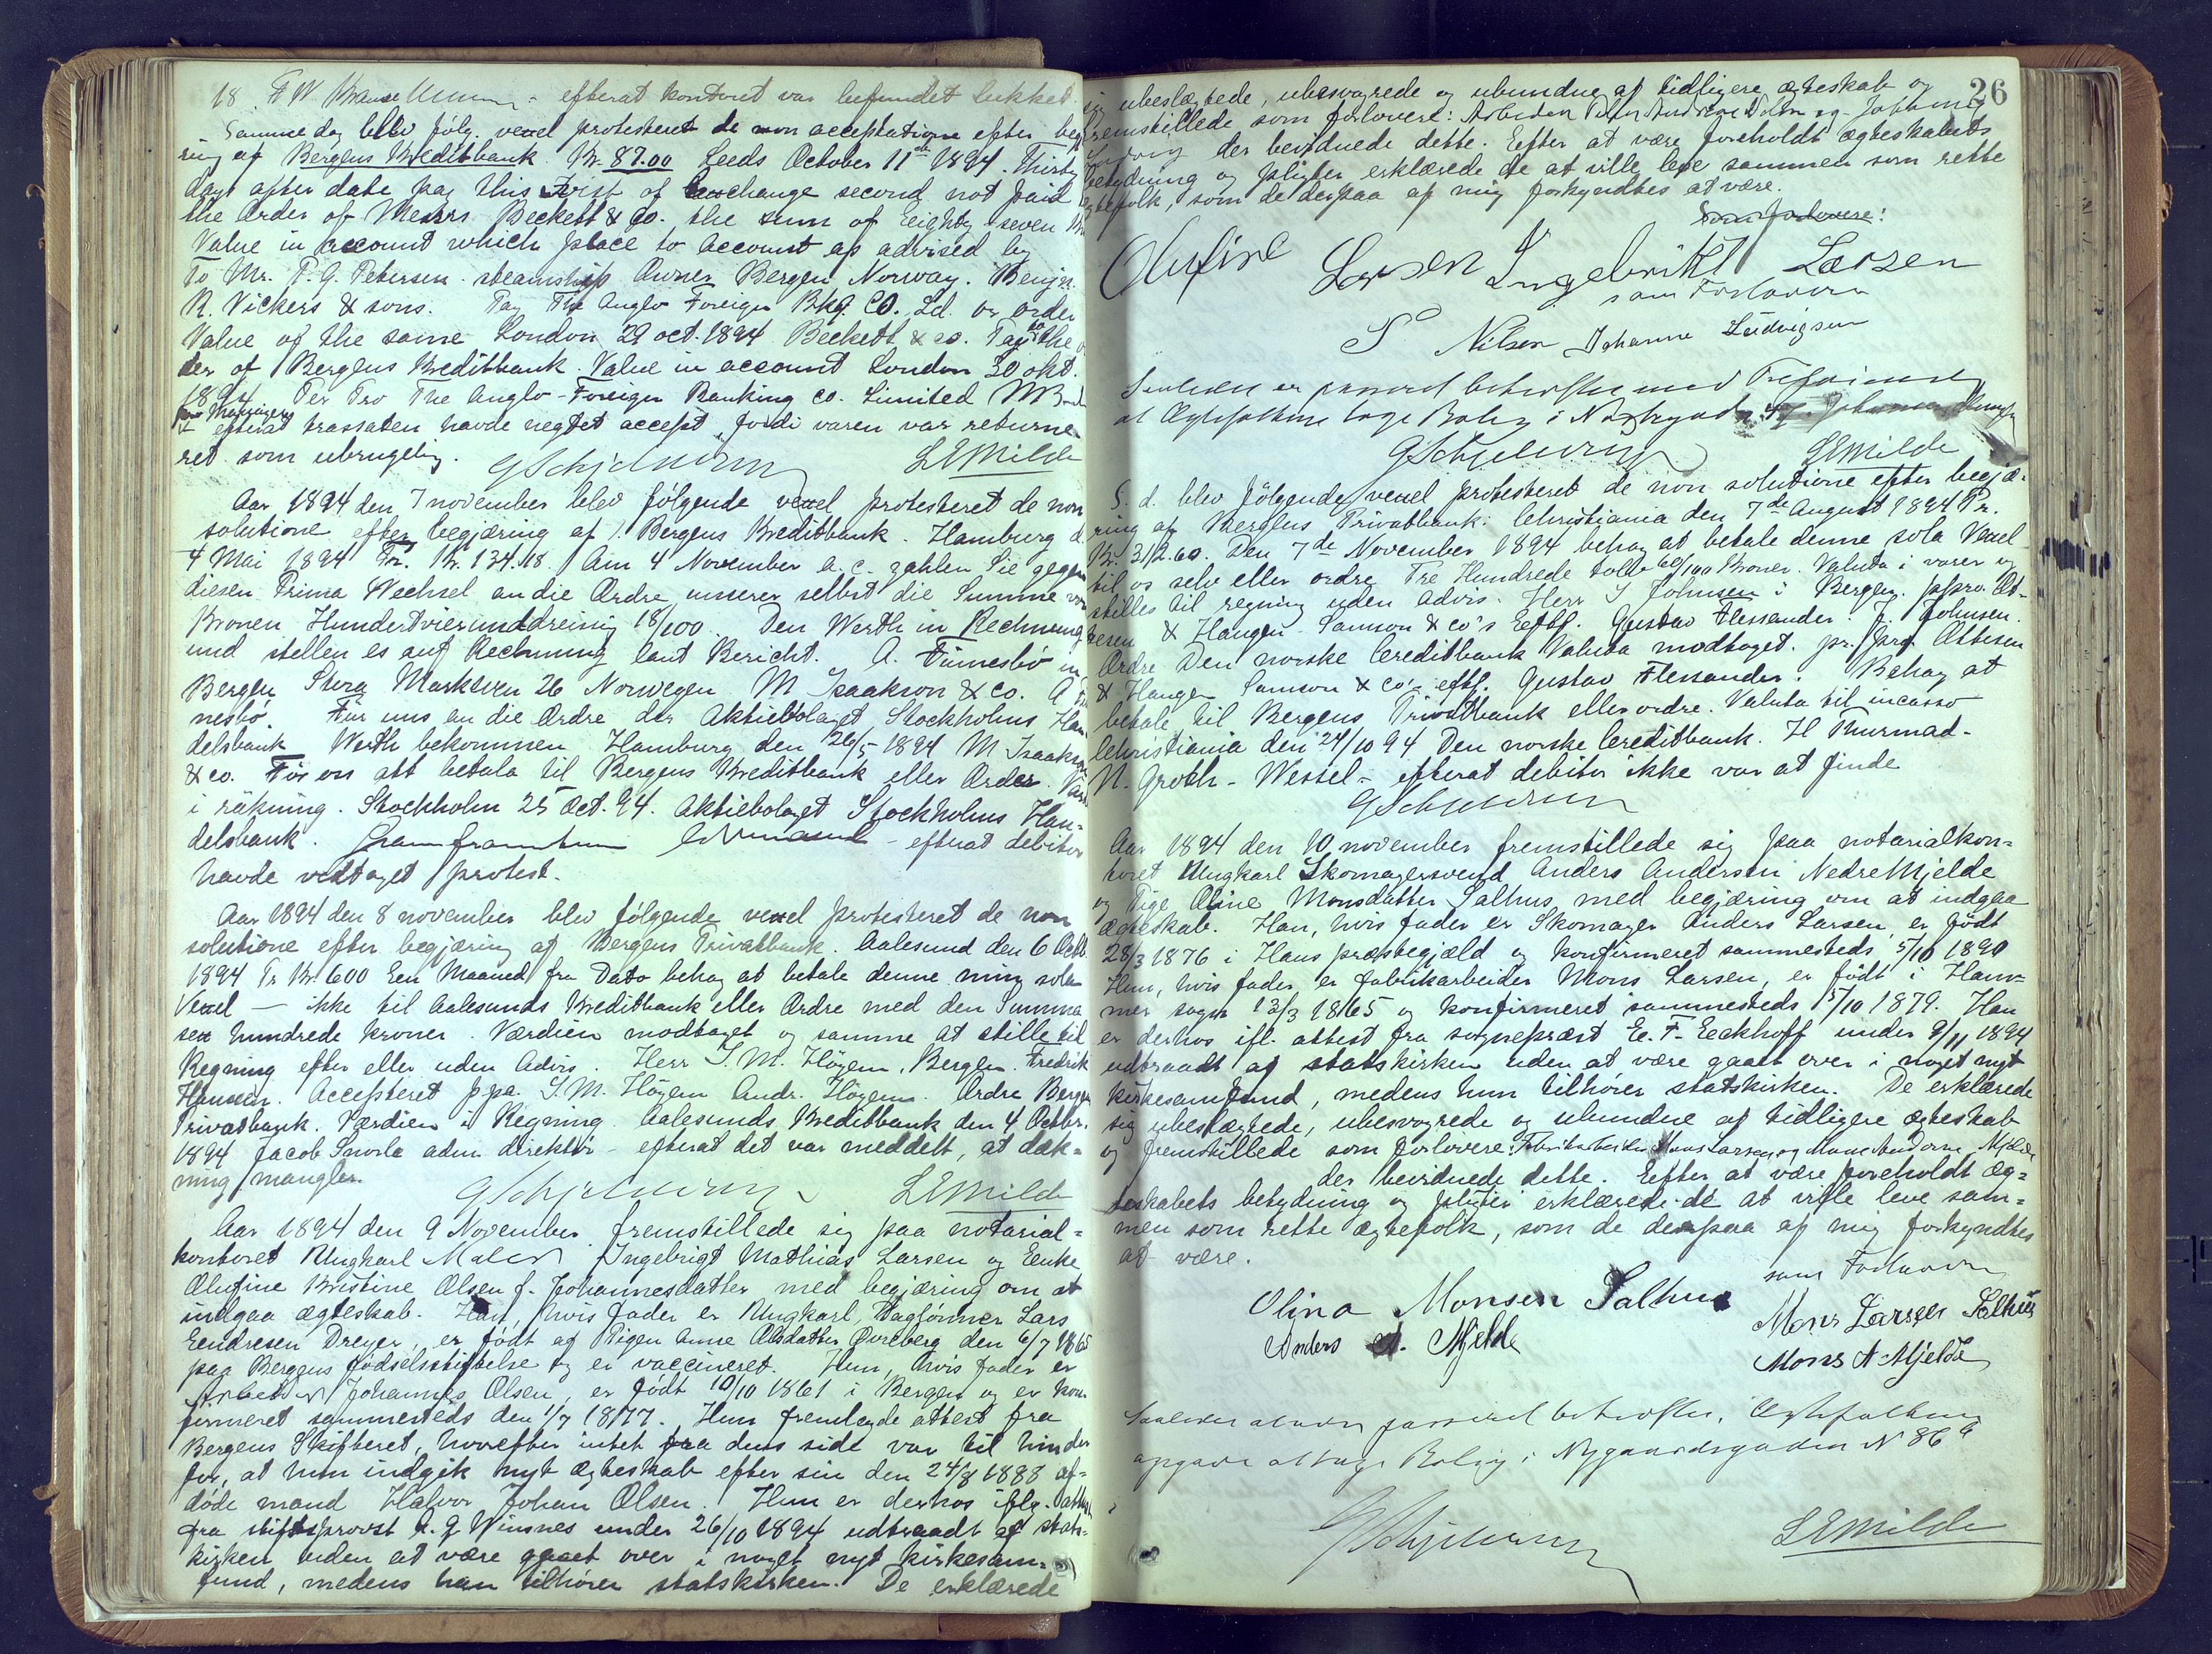 18. F W efterat kontoret var befundet lukket.
Samme dag blev følg. vexel protesteret de non acceptatione efter begjæ
ring af Bergens Kreditbank. Kr. 87.00 Leeds October 11th 1894. Thirty
days after date pay this First of Exchange second not paid
the Order of Messrs. Beckett & Co. the sum of Eighty seven Kr
Value in account which place to account as advised by
To Mr. P. G. Petersen steamship Owner Bergen Norway. Benjn.
R. Vickers & sons. Pay The Anglo Foreign Bkg. Co. Ld. or order
Value of the same London 29 oct. 1894 Beckett & co. Pay to the or
der of Bergens Kreditbank. Value in account London 30 okt.
1894 Per Pro The Anglo-Foreign Banking co. Limited
efterat trassaten havde negtet accept, fordi varen var returne
ret som ubrugelig.
LEMilde
Aar 1894 den 7 november blev følgende vexel protesteret de non
solutione efter begjæring af Bergens Kreditbank. Hamburg d.
4 Mai 1894 Pr. Kr. 134.18. Am 4 November a.c. zahlen Sie gegen
diesen Prima Wechsel an die Ordre unserer selbst die Summe von
Kronen Hundertvierunddreissig 18/100. Den Werth in Rechnung
und stellen es auf Rechnung laut Bericht. A. Tümesbö in
Bergen Store Marksvei 26 Norwegen M Isaakson & co. A Tü
nesbö. Für uns an die Ordre der Aktiebolaget Stockholms Han
delsbank Werth bekommen Hamburg den 26/5 1894 M Isaakson
& co. För oss att betala til Bergens Kreditbank eller Order. Värdet
i räkning. Stockholm 25 Oct. 94. Aktiebolaget Stockholms Han-
delsbank. - efterat debitor
havde vedtaget protest.
Aar 1894 den 8 november blev følgende vexel protesteret de non
solutione efter begjæring af Bergens Privatbank. Aalesund den 6 Octb.
1894 Pr Kr. 600 Een Maaned fra Dato behag at betale denne min sola
Vexel — ikke til Aalesunds Kreditbank eller Ordre med den Summa
sex hundrede kroner. Værdien modtaget og samme at stille til
Regning efter eller uden Advis. Herr S. M. Höyem, Bergen. Fredrik
Hansen. Accepteret ppa. S. M. Höyem Andr. Höyem. Ordre Bergens
Privatbank. Værdien i Regning. Aalesunds Kreditbank den 4 Octbr.
1894 Jacob Snorle adm direktør - efterat det var meddelt, at dæk-
ning mangler.
LEMilde
Aar 1894 den 9 November fremstillede sig paa notarial-
kontoret Ungkarl Maler Ingebrigt Mathias Larsen og Enke
Olufine Kristine Olsen f. Johannesdatter med begjæring om at
indgaa ægteskab. Han, hvis fader er Ungkarl, Daglønner Lars
Eendresen Dreyer, er født af Pigen Anne Olsdatter Øvreberg den 6/7 1865
paa Bergens fødselsstiftelse og er vaccineret. Hun, hvis fader er
Arbeider Johannes Olsen, er født 10/10 1861 i Bergen og er kon
firmeret sammesteds den 1/7 1877. Hun fremlagde attest fra
Bergens Skifteret, hvorefter intet fra dens side var til hinder
for, at hun indgik nyt ægteskab efter sin den 24/8 1888 af-
døde mand Halvor Johan Olsen. Hun er derhos iflg. attest
fra stiftsprovst Winsnes under 26/10 1894 udtraadt af stats-
kirken uden at være gaaet over i noget nyt kirkesam-
fund, medens han tilhører statskirken. De erklærede
26
sig ubeslægtede, ubesvogrede og ubundne af tidligere ægteskab og
fremstillede som forlovere: Arbeider
der bevidnede dette. Efter at være foreholdt ægteskabets
betydning og pligter erklærede de at ville leve sammen som rette
ægtefolk, som de derpaa af mig forkyndtes at være.
Som forlovere:
Olufine Larsen Ingebrikt Larsen
som Forlovere
S Nilsen Johanne Ludvigsen
Saaledes passeret bekræftes med Tilføiende
at Ægtefolkene tage Bolig i
LEMilde
S. d. blev følgende vexel protesteret de non solutione efter begjæ-
ring af Bergens Privatbank: Christiania den 7de August 1894 Pr.
Kr. 312.60. Den 7de November 1894 behag at betale denne sola Vexel
til os selv eller ordre Tre Hundrede tolv 60/100 Kroner. Valuta i varer og
stilles til regning uden advis. Herr J Johnsen i Bergen. ppro. Ot-
tesen & Haugen - Samson & co's Eeftf. Gustav Flessander. J. Johnsen.
Ordre Den norske Creditbank Valuta modtaget. pr. pro. Ottesen
& Haugen Samson & Co's eftf. Gustav Flessander. Behag at
betale til Bergens Privatbank eller ordre. Valuta til incasso
Christiania den 24/10 94 Den norske Creditbank. H Thurmad-
N. Groth - Wessel - efterat debitor ikke var at finde
Aar 1894 den 10. november fremstillede sig paa notarialkon-
toret Ungkarl Skomagersvend Anders Andersen Nedre Mjelde
og Pige Oline Monsdatter Salhus med begjæring om at indgaa
ægteskab. Han, hvis fader er Skomager Anders Larsen, er født
28/3 1876 i Haus præstegjæld og konfirmeret sammesteds 5/10 1890
Hun, hvis fader er fabrikarbeider Mons Larsen, er født i Ham-
mer sogn 13/3 1865 og konfirmeret sammesteds 5/10 1879. Han
er derhos ifl. attest fra sogneprest E. F. Eckhoff under 9/11 1894
udtraadt af statskirken uden at være gaaet over i noget nyt
kirkesamfund, medens hun tilhører statskirken. De erklærede
sig ubeslægtede, ubesvogrede og ubundne af tidligere ægteskab
og fremstillede som forlovere: Fabrikarbeider Mons Larsen og Mons Andersen Mjelde
der bevidnede dette. Efter at være foreholdt æg-
teskabets betydning og pligter erklærede de at ville leve sam-
men som rette ægtefolk, som de derpaa af mig forkyndtes
at være.
som Forlovere
Olina Monsen Salhus Mons Larsen Salhus
Anders A. Mjelde Mons A Mjelde
Saaledes passeret bekræftes, Ægtefolkene
opgave at tage Bolig i Nygaardsgaden N 86 a
LEMilde